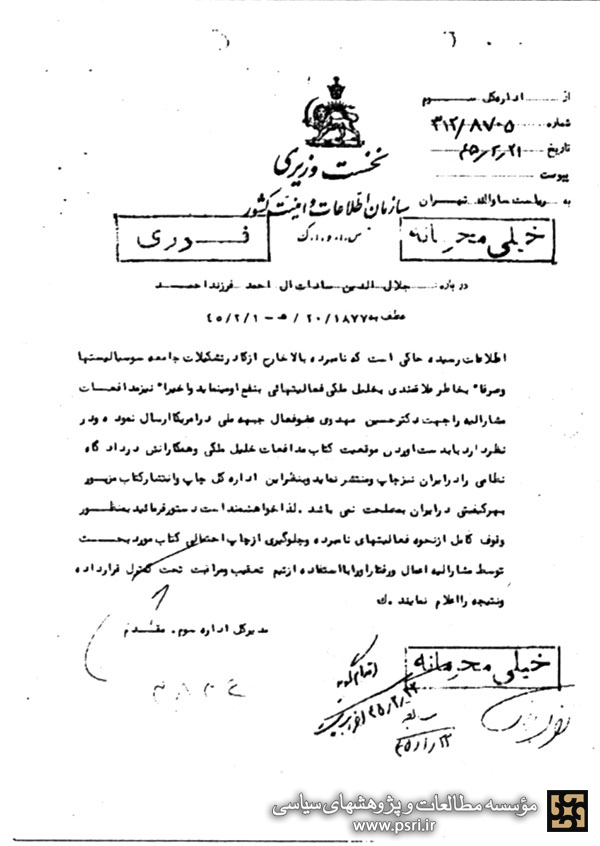 از اداره کل سوم
شماره ۳۱۲/۸۷۰۵
تاریخ ۴۵/۲/۲۱
پیوست
به ریاست ساواک تهران
نخست وزیری
سازمان اطلاعات و امنیت کشور
س.ا.و.ا.ک
خیلی محرمانه
فوری
درباره جلال الدین سادات ال احمد فرزند احمد
عطف به ۲۰/۱۸۷۷/ه - ۴۵/۲/۱
اطلاعات رسیده حاکی است که نامبرده بالا خارج از کادر تشکیلات جامعه سوسیالیستها
وصرفا" بخاطر علاقمندی بخلیل ملکی فعالیتهائی بنفع او مینماید واخیرا" نیز مدافعات
مشارالیه را جهت دکتر حسین مهدوی عضو فعال جبهه ملی در امریکا ارسال نموده ودر
نظر دارد با بدست اوردن موقعیت کتاب مدافعات خلیل ملکی وهمکارانش در دادگاه
نظامی را در ایران نیز چاپ ومنتشر نماید وبنظر این اداره کل چاپ وانتشار کتاب مزبور
بهر کیفیتی در ایران بمصلحت نمی باشد. لذا خواهشمند است دستور فرمائید بمنظور
وقوف کامل از نحوه فعالیتهای نامبرده وجلوگیری از چاپ احتمالی کتاب مورد بحث
توسط مشارالیه اعمال ورفتار اورا با استفاده از تیم تعقیب ومراقبت تحت کنترل قرار داده
ونتیجه را اعلام نمایند. ک
مدیر کل اداره سوم. مقدم
خیلی محرمانه
اقدام گردید
۴۵/۲/۲۲
مؤسسه مطالعات و پژوهشهای سیاسی
www.psri.ir